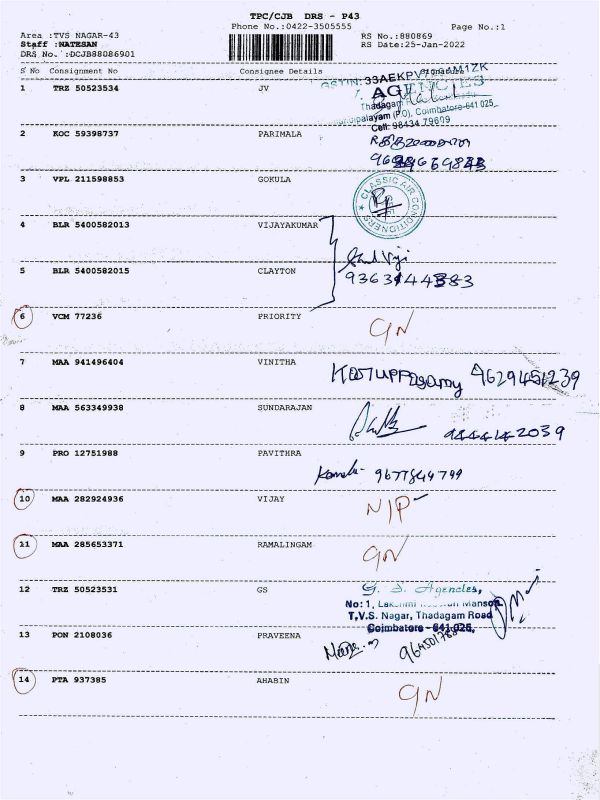 TPC/CJB DRS - P43
Phone No.:0422-3505555 Page No.:1
Area :TVS NAGAR-43 RS No.:880869
Staff :NATESAN RS Date:25-Jan-2022
DRS No. :DCJB88086901
S No Consignment No Consignee Details Signature
GSTIN: 33AEKPV
1 TRZ 50523534 JV
AGENCIES
Thadagam
(P.O), Coimbatore-641 025,
Cell: 98434 79609
2 KOC 59398737 PARIMALA
3 VPL 211598853 GOKULA
CLASSIC AIR CONDITIONERS
4 BLR 5400582013 VIJAYAKUMAR
5 BLR 5400582015 CLAYTON
6 VCM 77236 PRIORITY
GN
7 MAA 941496404 VINITHA
Karuppasamy
8 MAA 563349938 SUNDARAJAN
9 PRO 12751988 PAVITHRA
9677844799
10 MAA 282924936 VIJAY
N/P
11 MAA 285653371 RAMALINGAM
GN
12 TRZ 50523531 GS
G. S. Agencies,
No: 1, Lakshmi Manson,
T.V.S. Nagar, Thadagam Road
Coimbatore - 641 025,
13 PON 2108036 PRAVEENA
14 PTA 937385 AHABIN
GN